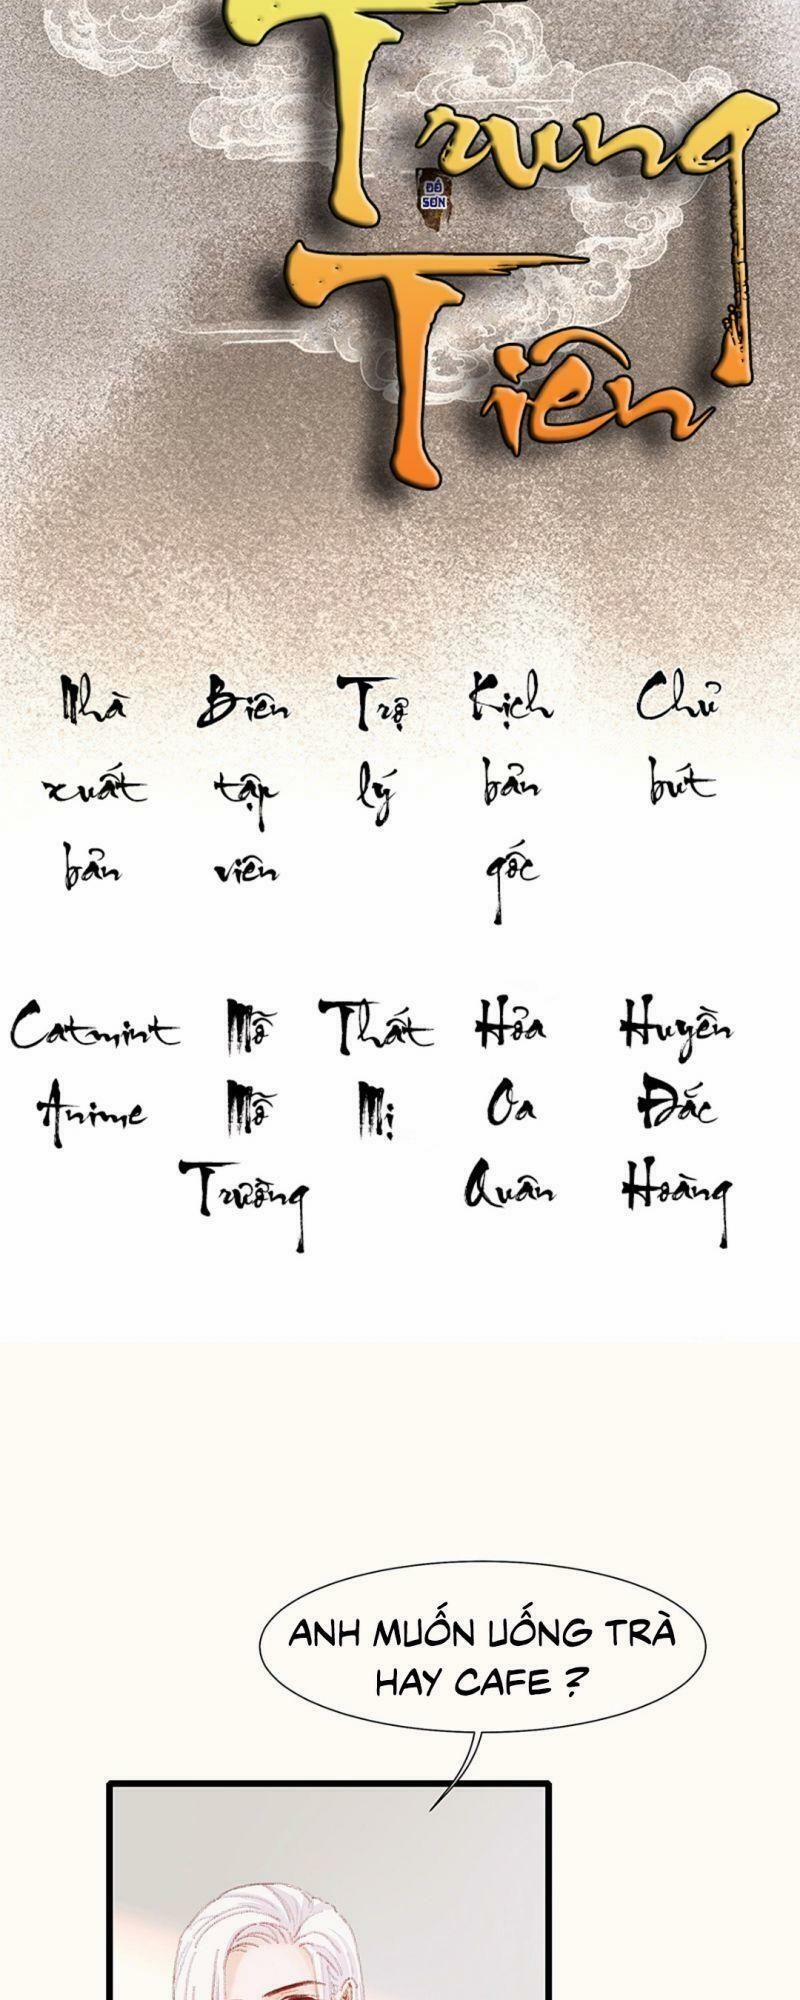 Trung
ĐẾ
SƠN
Tiên
Nhà Biên Trợ Kịch Chủ
xuất tập lý bản bút
bản viên gốc
Catmint Mỗ Thất Hỏa Huyền
Anime Mỗ Mị Oa Đắc
Trường Quân Hoàng
ANH MUỐN UỐNG TRÀ
HAY CAFE ?